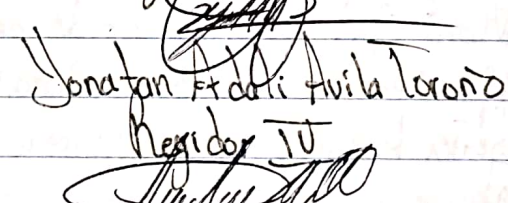 Yonatan Adali Avila Toroño
Regidor IV